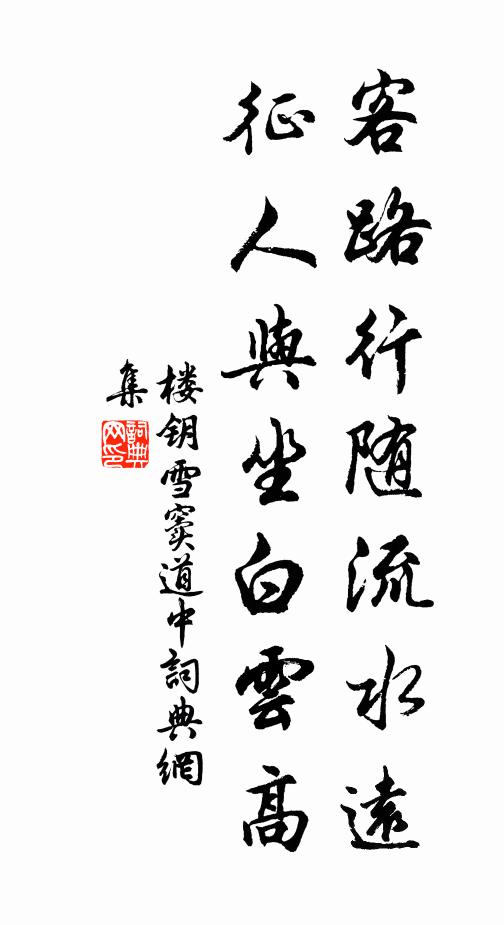 客路行随流水遠
征人與坐白雲高
楼钥雪窦道中詞典網
集
詞典
网印